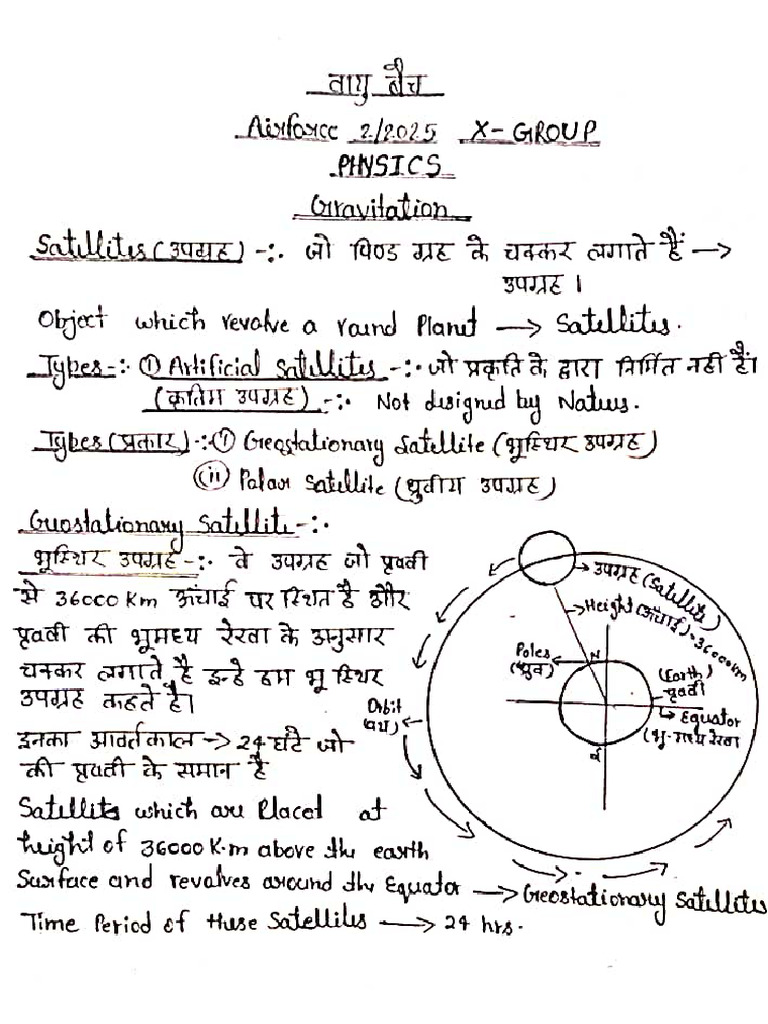 वायु बैच
Airforce 2/2025 X-GROUP
PHYSICS
Gravitation
Satellites (उपग्रह) -:. जो पिण्ड ग्रह के चक्कर लगाते हैं →
उपग्रह ।
Object which revolve a round Planet → Satellites.
Types -:. ① Artificial Satellites -:. जो प्रकृति के द्वारा निर्मित नहीं हैं।
(कृतिम उपग्रह) -:. Not designed by Natues.
Types (प्रकार) -:. (i) Geostationary Satellite (भूस्थिर उपग्रह)
(ii) Polar Satellite (ध्रुवीय उपग्रह)
Geostationary Satellite -:.
भूस्थिर उपग्रह -:. वे उपग्रह जो पृथ्वी
से 36000 Km ऊंचाई पर स्थित है और
पृथ्वी की भूमध्य रेखा के अनुसार
चक्कर लगाते है इन्हे हम भू स्थिर
उपग्रह कहते है।
इनका आवर्तकाल → 24 घंटे जो
की पृथ्वी के समान है
Satellites which are Placed at
height of 36000 K.m above the earth
Surface and revolves around the Equator → Geostationary Satellites
Time Period of these Satellites → 24 hrs.
उपग्रह (Satellite)
Height (ऊंचाई) = 36000km
Poles
(ध्रुव)
N
(Earth)
पृथ्वी
Equator
(भू-मध्य रेखा
S
Orbit
(पथ)